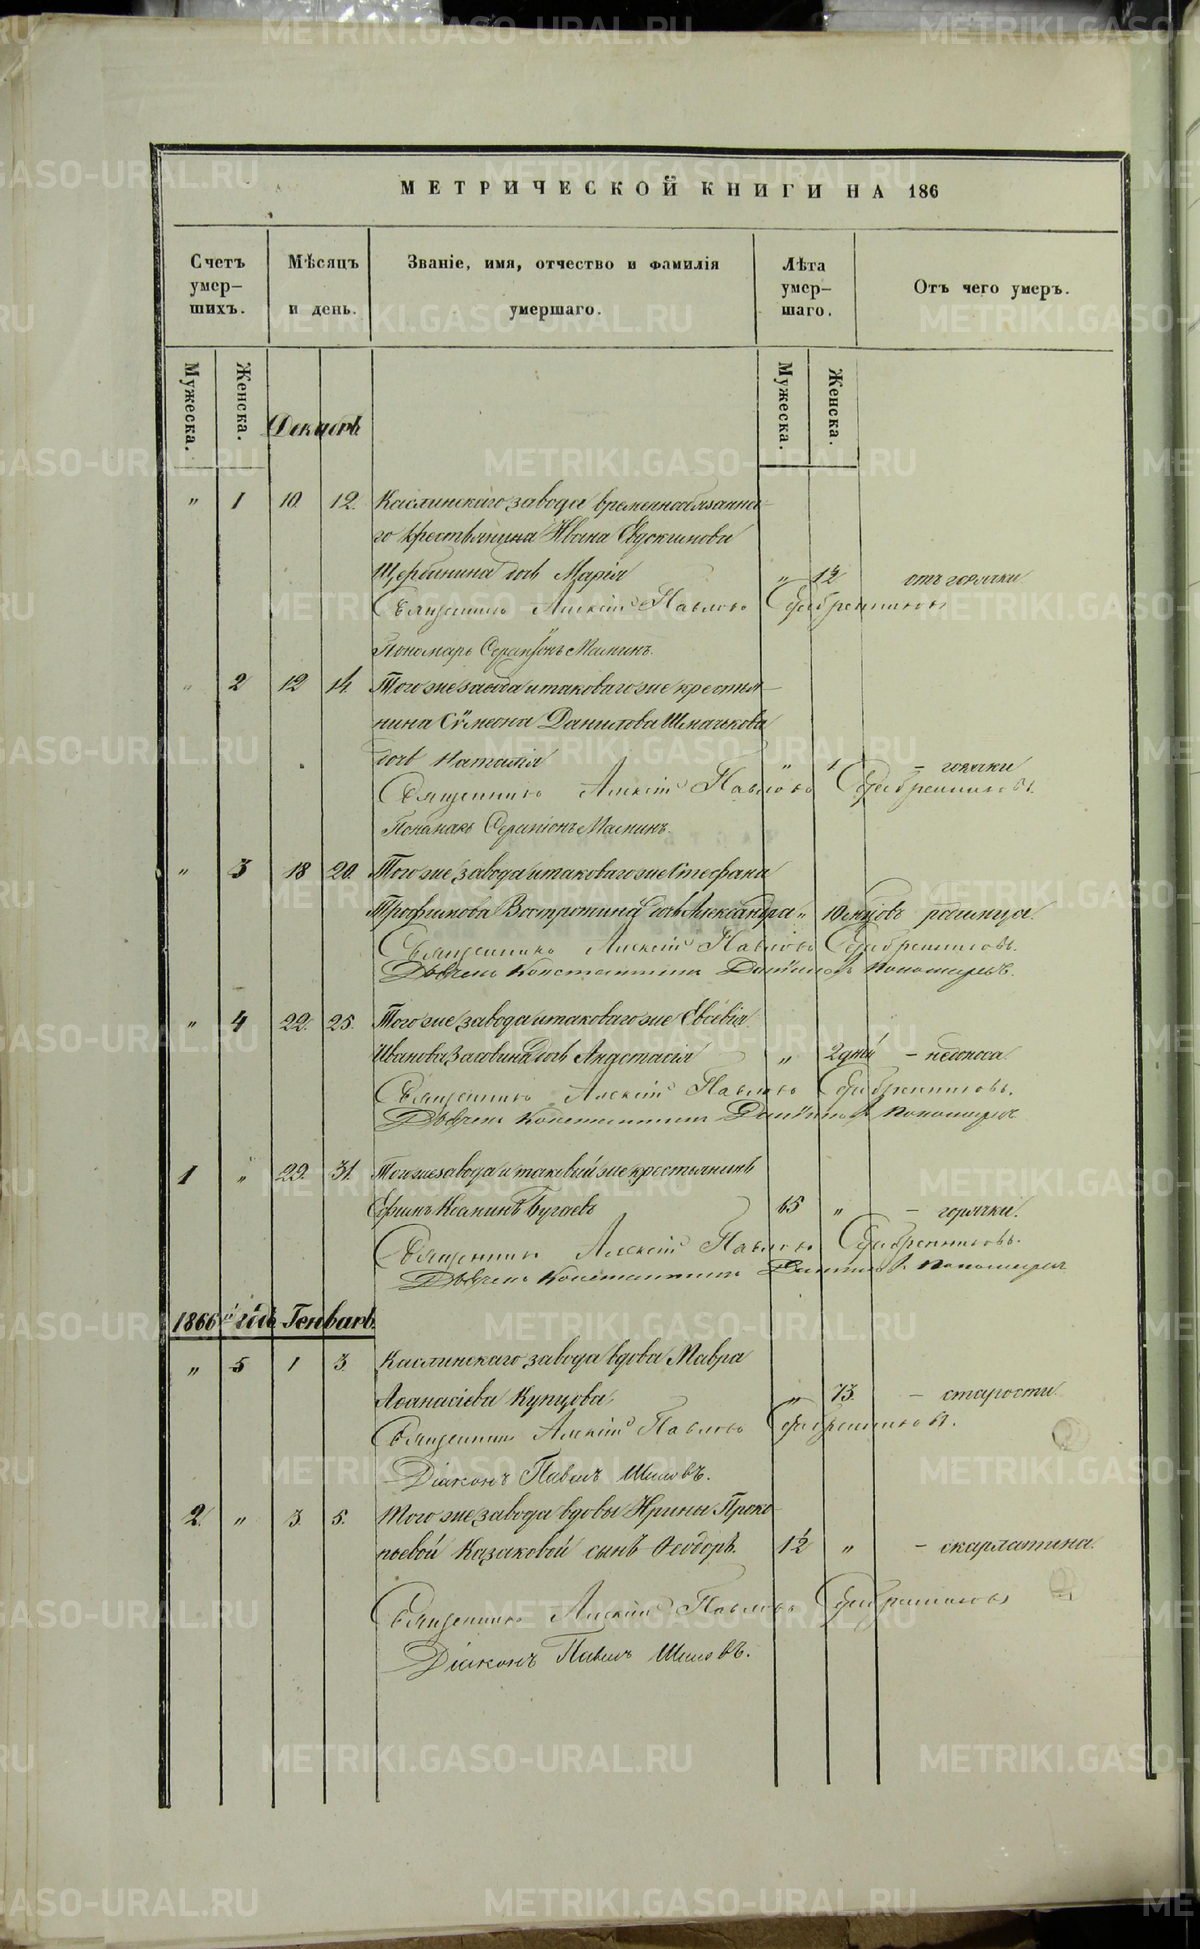 МЕТРИЧЕСКОЙ КНИГИ НА 186
Счетъ умер-шихъ.
Мѣсяцъ и день.
Званіе, имя, отчество и фамилія умершаго.
Лѣта умер-шаго.
Отъ чего умеръ.
Мужеска.
Женска.
Мужеска.
Женска.
Декабрь
" 1 10. 12. Каслинскаго завода временнообязанна-
го крестьянина Ивана Евдокимова
Щербинина дочь Марія " 1½ отъ горячки
Священникъ Алексій Павловъ Серебренниковъ
Пономарь Серапіонъ Маминъ.
" 2 12 14. Того же завода и таковаго же крестья-
нина Сѵмеона Данилова
дочь Наталія " 1 - горячки
Священникъ Алексій Павловъ Серебренниковъ.
Пономарь Серапіонъ Маминъ.
" 3 18 20. Того же завода и таковаго же Стефана
Трофимова Востротина дочь Александра " 10 мѣсцовъ родимца.
Священникъ Алексій Павловъ Серебренниковъ.
Константинъ Пономаревъ.
" 4 22. 25. Того же завода и таковаго же Евсевія
Иванова дочь Анастасія " 2 дній - недоноса
Священникъ Алексій Павловъ Серебренниковъ.
Константинъ Пономаревъ
1 " 29. 31. Того же завода и таковый же крестьянинъ
Бугаевъ 65 " - горячки.
Священникъ Алексій Павловъ Серебренниковъ.
Константинъ Пономаревъ
1866й годъ. Генварь.
" 5 1 3. Каслинскаго завода вдова Мавра
Аѳанасіева Купцова. " 73. - старости
Священникъ Алексій Павловъ Серебренниковъ.
Діаконъ Павелъ Шиловъ.
2. " 3. 5. Того же завода вдовы Ирины Проко-
пьевой Казаковой сынъ Ѳеодоръ. 1½ " - скарлатина.
Священникъ Алексій Павловъ Серебренниковъ
Діаконъ Павелъ Шиловъ.
METRIKI.GASO-URAL.RU